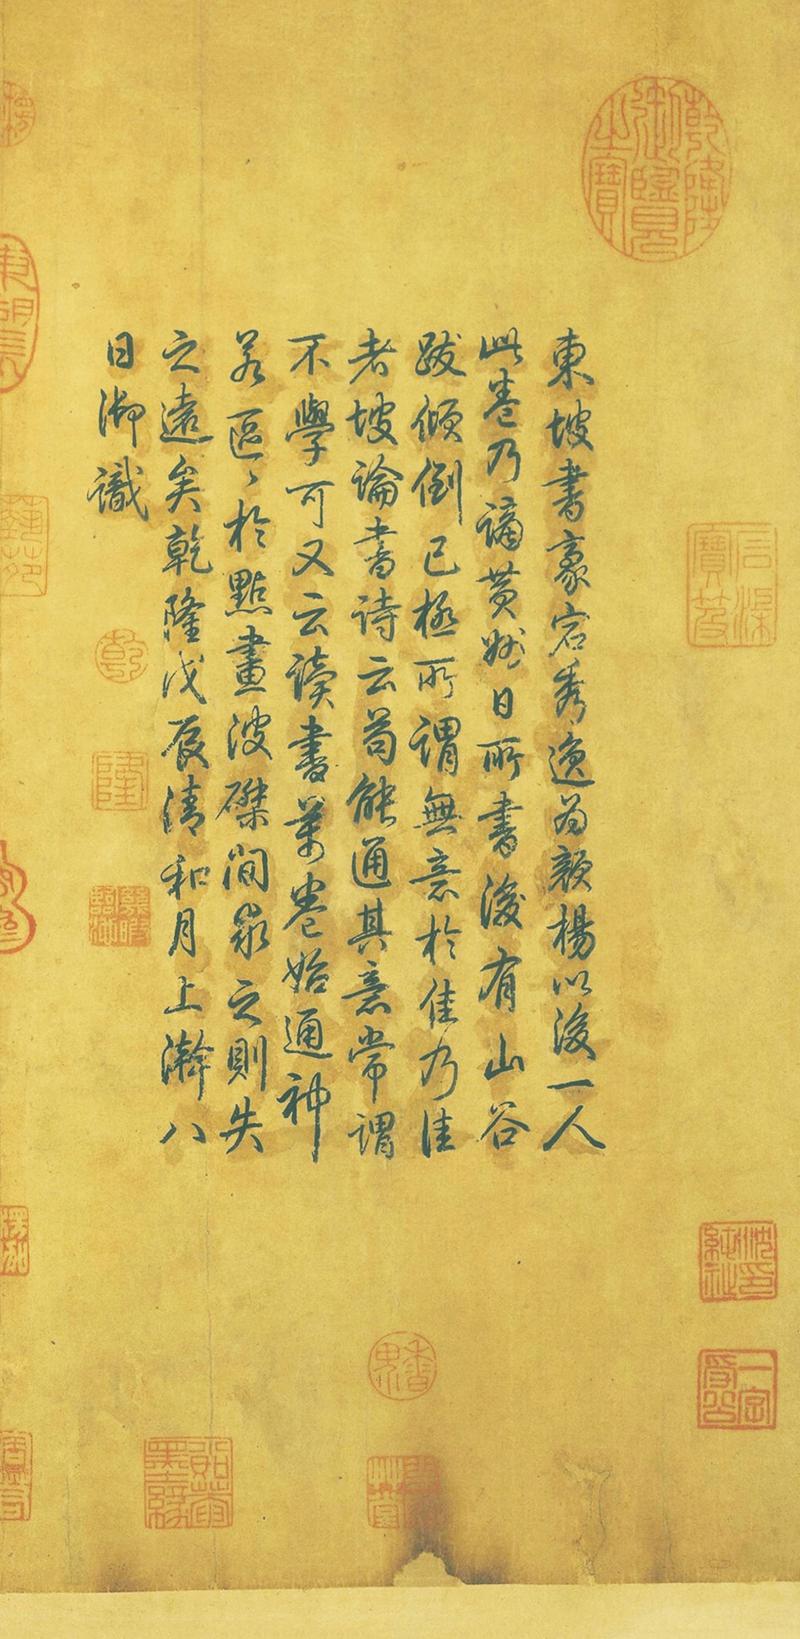 東坡書豪宕秀逸為顏楊以後一人
此卷乃謫黃州日所書後有山谷
跋傾倒已極所謂無意於佳乃佳
者坡論書詩云苟能通其意常謂
不學可又云讀書萬卷始通神
若區〻於點畫波磔間求之則失
之遠矣乾隆戊辰清和月上澣八
日御識
乾隆御覽之寶
乾
隆